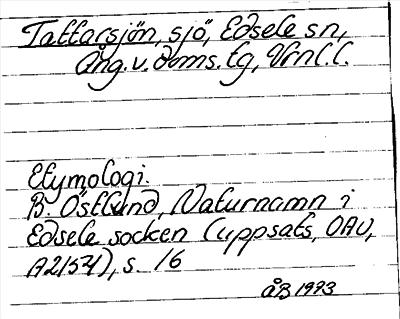 Tattarsjön, sjö, Edsele sn,
Ång. v. doms. tg, Vrnl. l.
Etymologi.
B. Östlund, Naturnamn i
Edsele socken (uppsats, OAU,
A2154), s. 16
ÅB 1993